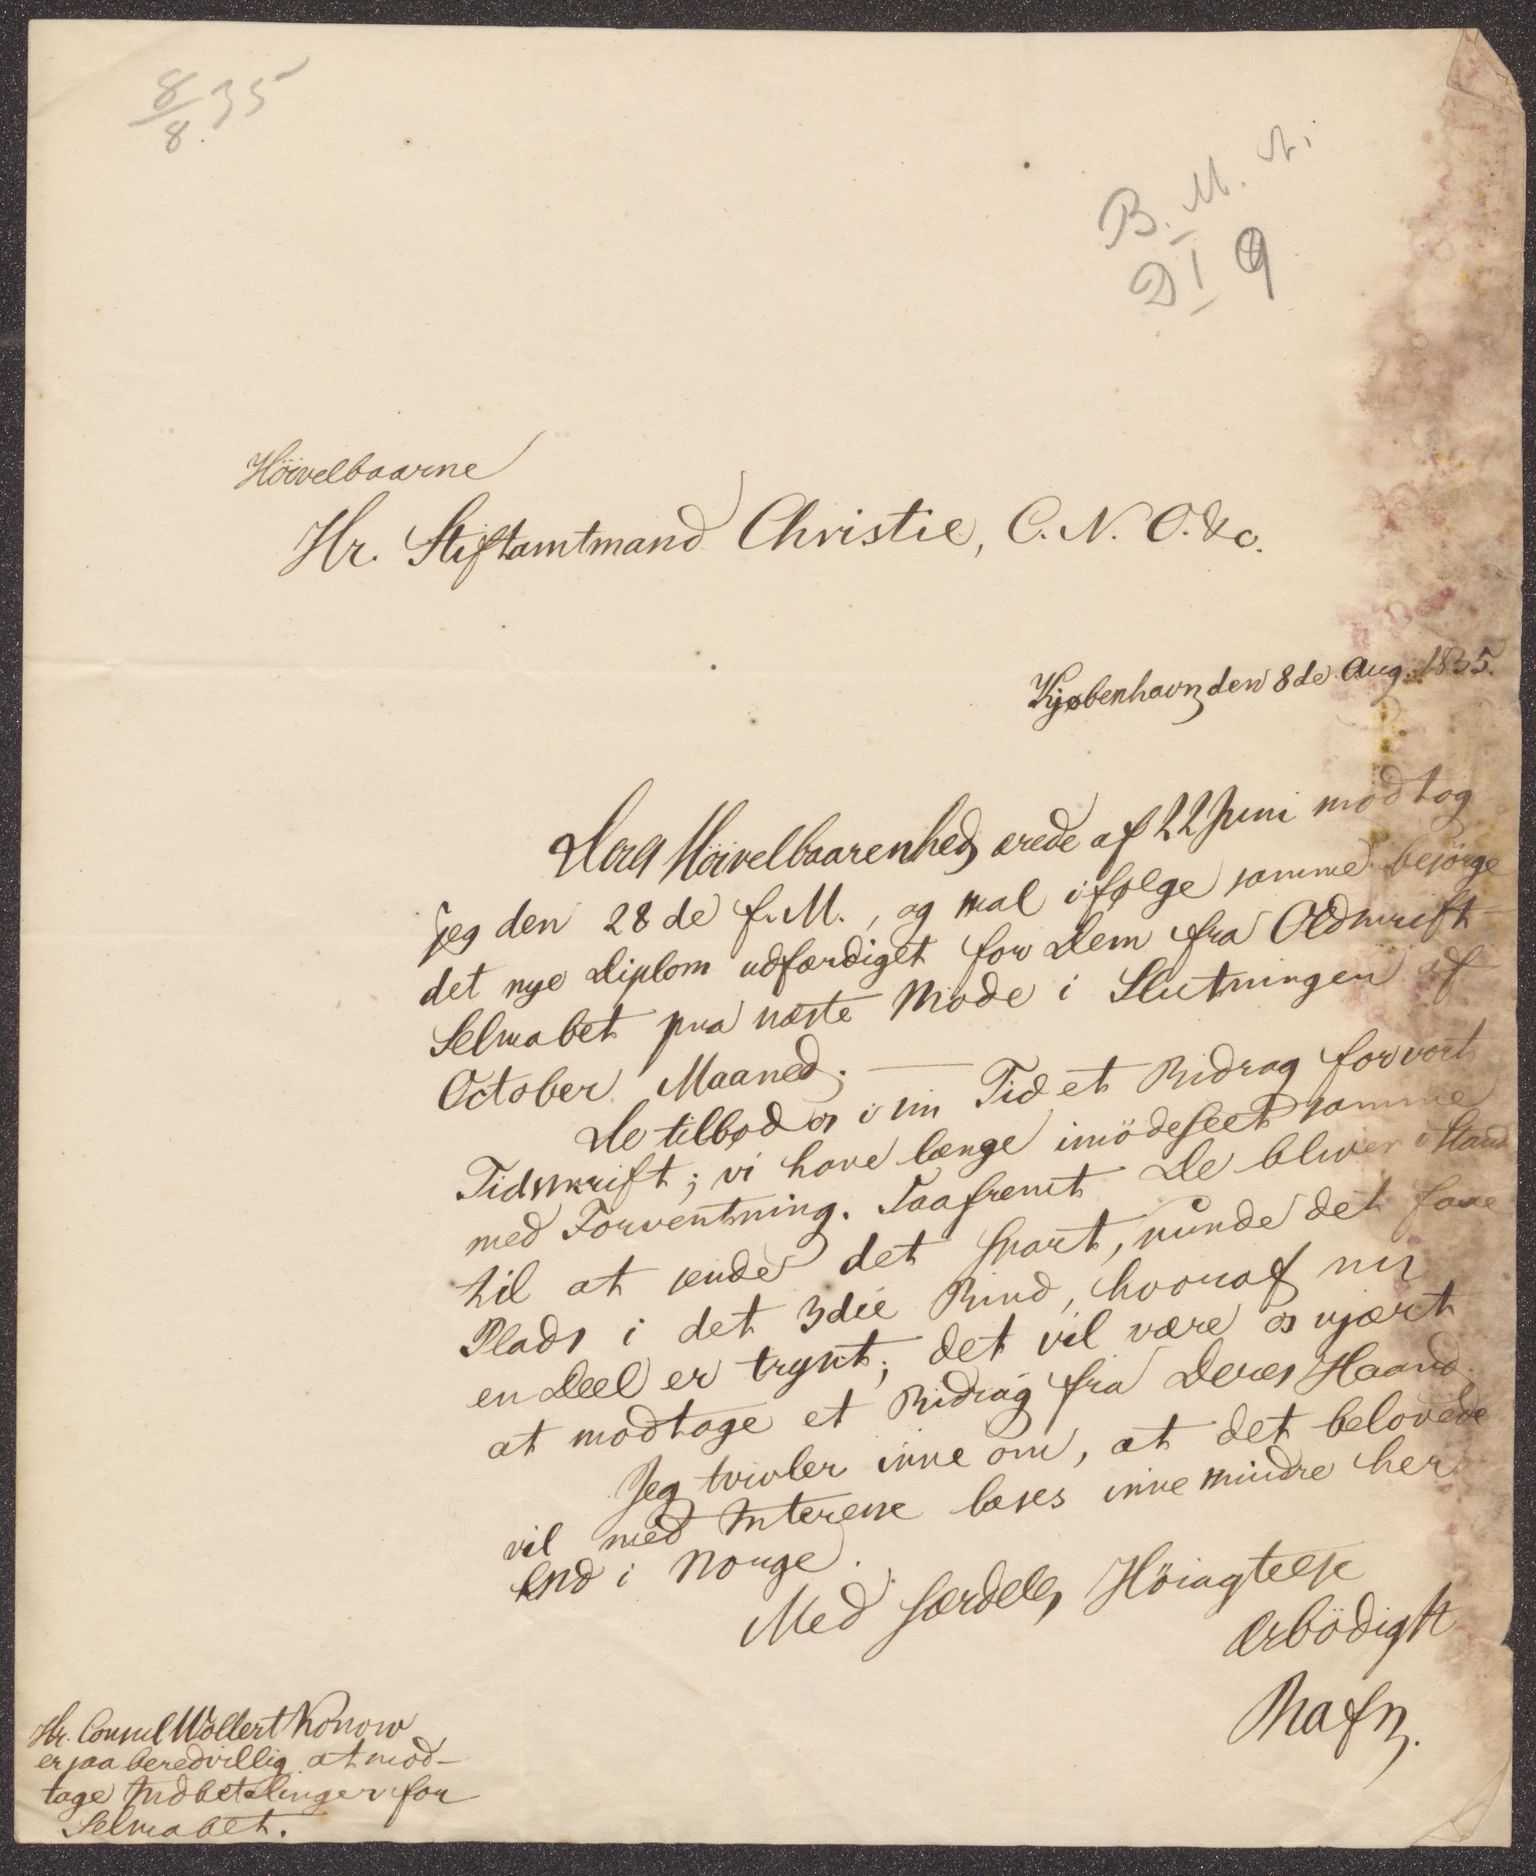 8/8.35
B. M. A.
D I 9
Höivelbaarne
Hr. Stiftamtmand Christie, C. N. O. &c.
Kjøbenhavn den 8de Aug. 1835.
Deres Höivelbaarenheds ærede af 22 Juni modtog
jeg den 28de f. M., og skal ifølge samme besörge
det nye Diplom udfærdiget for Dem fra Oldskrift-
Selskabet paa næste Møde i Slutningen af
October Maaned. —
De tilbød os i sin Tid et Bidrag for vort
Tidsskrift; vi have længe imödeseet samme
med Forventning. Saafremt De bliver istand
til at sende det snart, kunde det faae
Plads i det 3die Bind, hvoraf nu
en Deel er trykt; det vil være os kjært
at modtage et Bidrag fra Deres Haand.
Jeg tvivler ikke om, at det belovede
vil med Interesse læses ikke mindre her
end i Norge.
Med særdeles Höiagtelse
ærbödigst
Rafn.
Hr. Consul Wollert Konow
er saa beredvillig at mod-
tage Indbetalinger for
Selskabet.